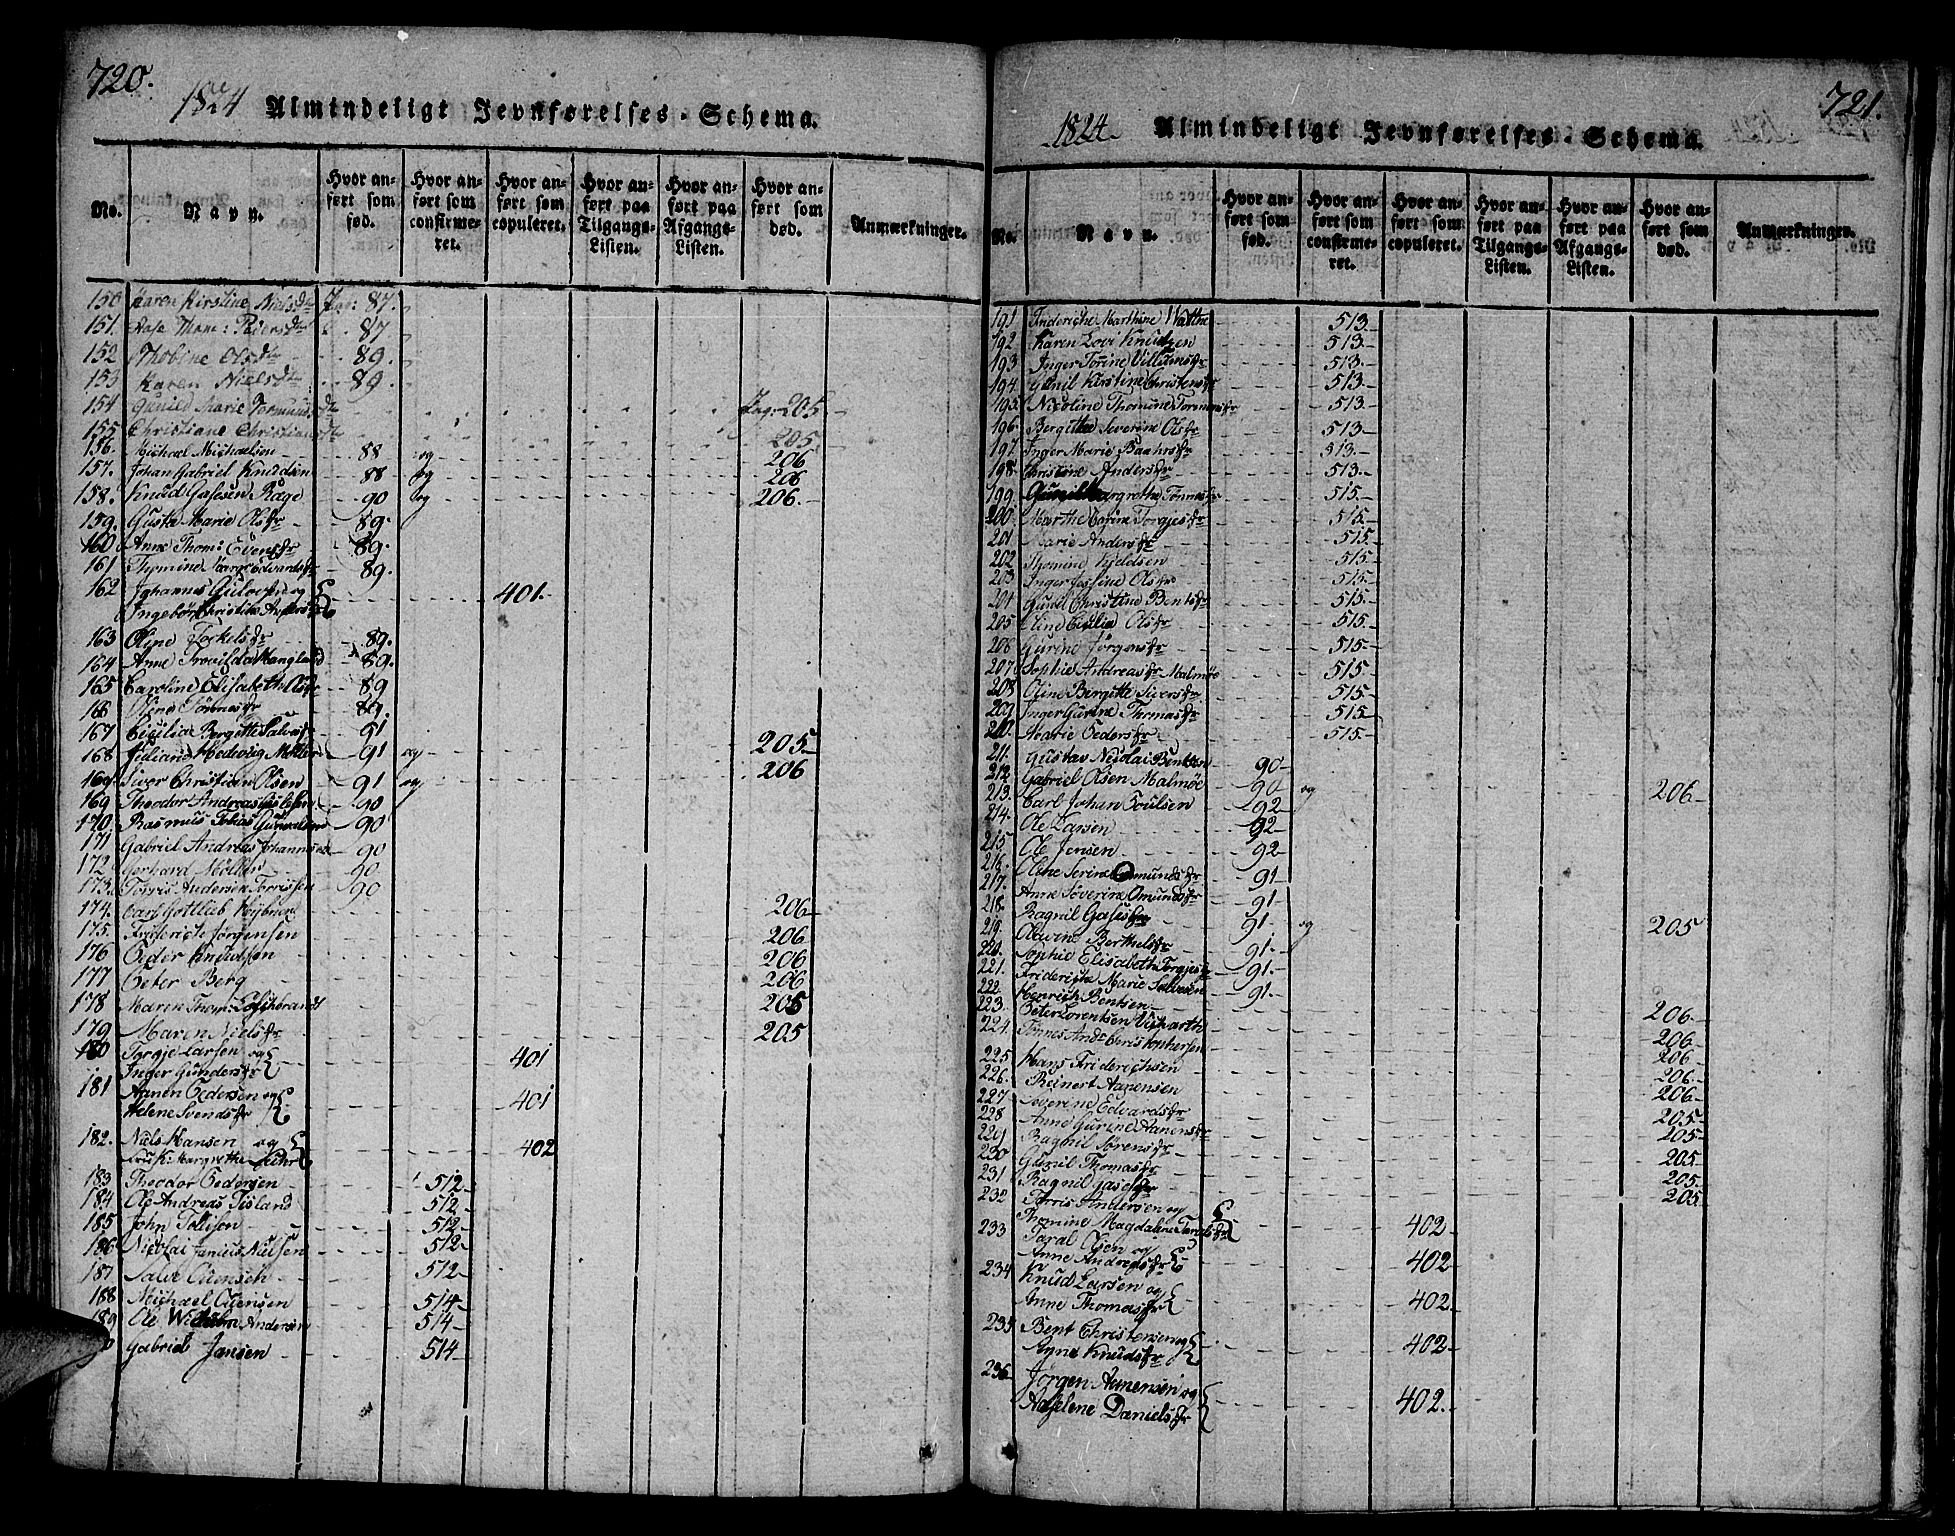 720.
1824 Almindeligt Jevnførelses-Schema.
No. Navn. Hvor anført som fød. Hvor anført som confirmeret. Hvor anført som copuleret. Hvor anført paa Tilgangs-Listen. Hvor anført paa Afgangs-Listen. Hvor anført som død. Anmærkninger.
150 Karen Kirstine Nielsdtr Pag: 87.
151. Aase Thom: Pedersdtr 87
152 Thobine Olsdtr 89.
153 Karen Nielsdtr 89.
154 Gunild Marie Tormundsdtr Pag: 205
155 Christiane Christiansdtr 205
156. Michael Michaelsen 88 og 206
157. Johan Gabriel Knudsen 88 og 206
158. Knud Gasesen Ræge 90 og 206.
159. Gusta Marie Olsdr 89.
160 Anne Thom: Evensdr 89.
161 Tymine Edvardsdr 89.
162 Johannes og 401.
Ingebor Christine Andersdr
163 Oline Torkelsdr 89.
164 Anne Trovilda Mangland 89.
165 Caroline Elisabeth Olsdr 89
166 Oline Tönnesdr 89.
167 Cicilia Bergitte Salvesdr 91
168 Juliane Hedevig Möller 91 og 205
169. Siver Christian Olsen 91 og 206
169 Theodor Andreas 90
170. Rasmus Tobias Gunvaldsen 90
171 Gabriel Andreas Johannesen 90
172 Gerhard Möller 90
173. Torris Andersen Torrissen 90
174. Carl Gottlieb 206
175. Friderich Jörgensen 206
176 Peder Knudsen 206
177 Peter Berg 206
178 Maren Thom: 205
179 Maren Nielsdr 205
180 Torgje Larsen og 401
Inger Gundersdr
181 Aanen Pedersen og 401
Helene Svendsdr
182. Niels Hansen og 402
Margrethe
183 Theodor Pedersen 512
184. Ole Andreas Tisland 512
185 John Tollisen 512
186 Nicolai Janius Nielsen 512
187 Salve 512
188 Michael 514
189 Ole Wilhelm Andersen 514
Gabriel Jansen 514
721.
1824. Almindeligt Jevnførelses-Schema.
No. Navn. Hvor anført som fød. Hvor anført som confirmeret. Hvor anført som copuleret. Hvor anført paa Tilgangs-Listen. Hvor anført paa Afgangs-Listen. Hvor anført som død. Anmærkninger.
191 Frideriche Marthine Watne 513
192 Karen Lovi Knudsen 513
193 Inger Torine Villumsdr 513
194. Gunil Kirstine Christensdr 513
195. Nicoline Thomine Tormodsdr 513
196 Bergitte Severine Olsdr 513
197. Inger Marie Baahrsdr 513
198. Christine Andersdr 513
199 Gunil Margrethe Tönnesdr 515
200. Marthe Torgjesdr 515
201 Marie Andersdr 515
202 Thomine Kjeldsen 515
203 Inger Josine Olsdr 515
204 Gunil Christine Bentsdr 515
205 Cicilia Olsdr 515
206 Gurine Jörgensdr 515
207. Sophie Andreasdr Malmøe 515
208 Oline Bergitte Siversdr 515
209 Inger Gurine Thomasdr 515
210. Marie Pedersdr 515
211. Gustav Nicolai Bentsen 90
212. Gabriel Olsen Malmøe 90 og 206
213. Carl Johan Poulsen 92
214. Ole Larsen 92
215. Ole Jensen 92
216. Oline Serine Omundsdr 91
217. Anne Severine Omundsdr 91
218. Ragnil Gasesdr 91 og 205
219. Olavine Berthelsdr 91.
220. Sophie Elisabeth Torgjesdr 91.
221. Friderikke Marie Salvesen 91
222. Henrich Bentsen 206
223. Peter Lorentsen 206
224. Tönnes And: Christophersen 206
225. Hans Friderichsen 206
226. Reinert Aanensen 206
227 Severine Edvardsdr 205
228 Anne Gurine Aanensdr 205
229 Ragnil Sörensdr 205
230 Gunil Thomasdr 205
231 Ragnil Gasesdr 205
232 Torris Andersen og 402
Thomine Magdalene Taralsdr
233 Taral Olsen og 402
Anne Andreasdr
234 Knud Larsen og 402
Anne Thomasdr
235 Bent Christensen og 402
Anne Knudsdr
236 Jörgen Aanensen og 402.
Danielsdr